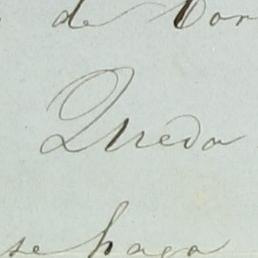 de Cor
Queda
se haga